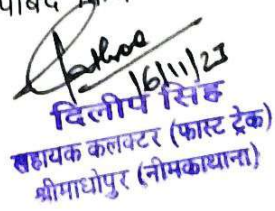 16/11/23
दिलीप सिंह
सहायक कलक्टर (फास्ट ट्रेक)
श्रीमाधोपुर (नीमकाथाना)